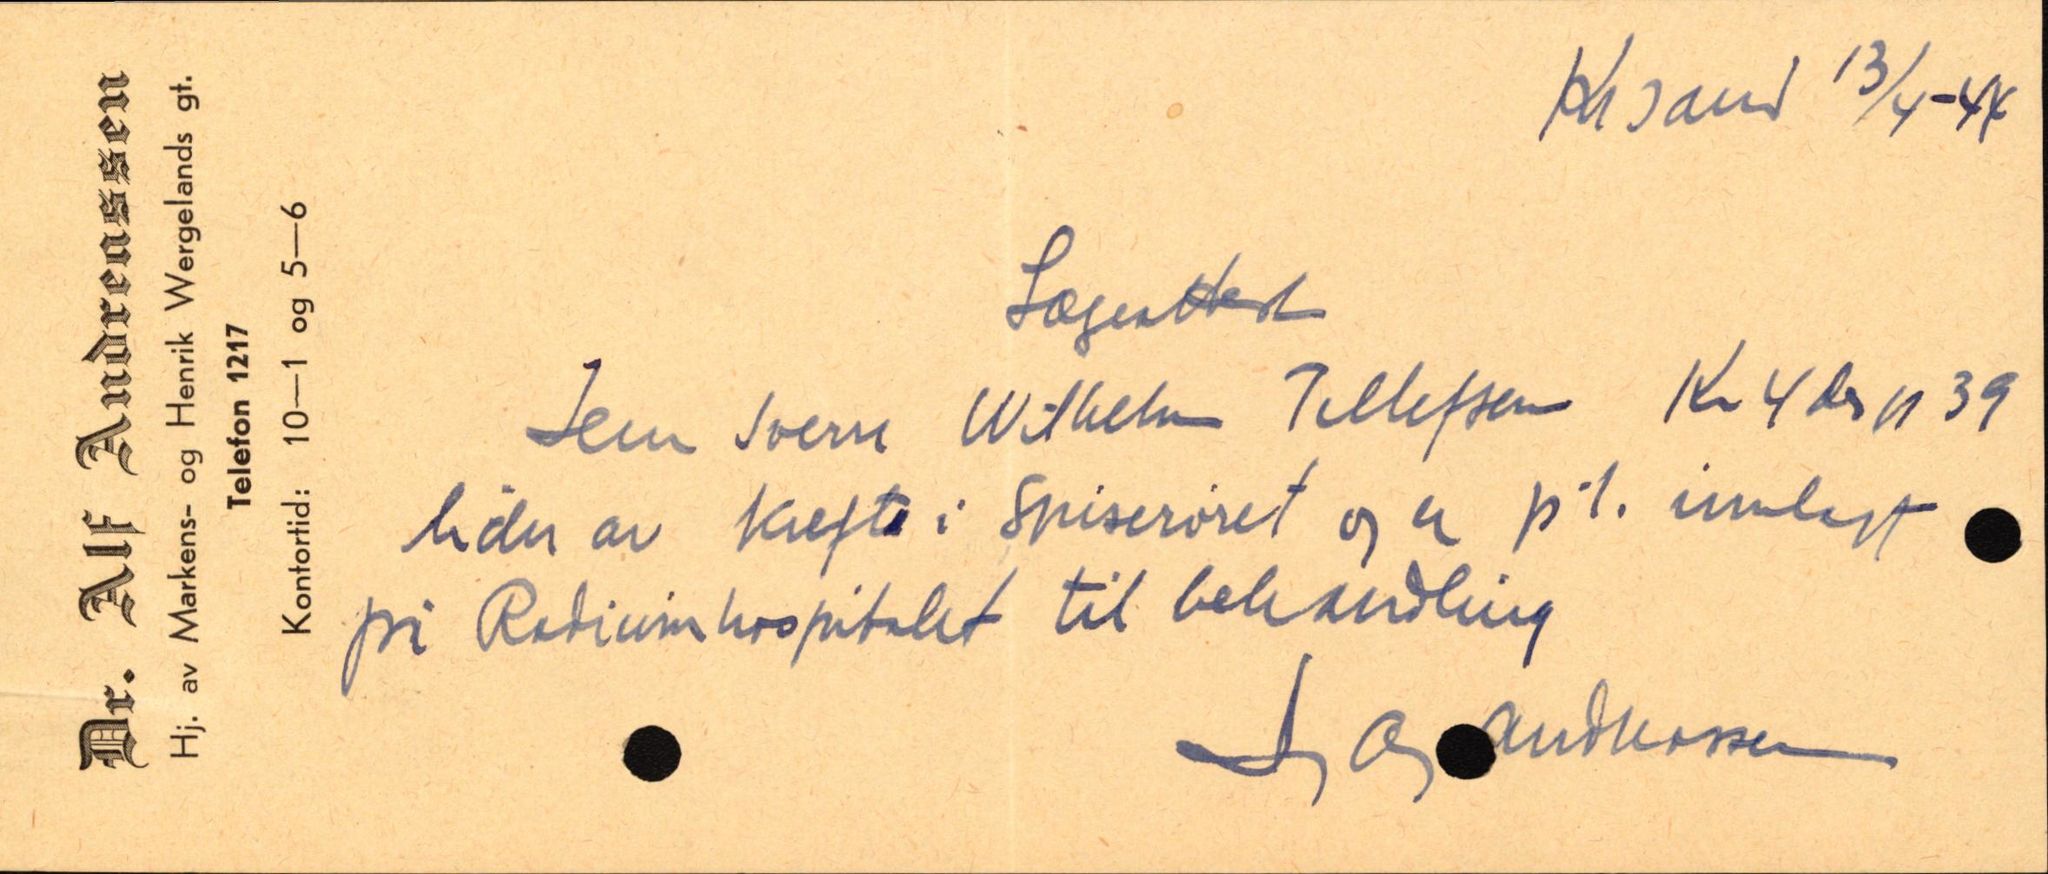 Dr. Alf Andreassen
Hj. av Markens- og Henrik Wergelands gt.
Telefon 1217
Kontortid: 10—1 og 5—6
Kr sand 13/4-44
Lægeattest
Jens Sverre Wilhelm Tellefsen Kr 4 des 39
lider av kreft i Spiserøret og er p.t. innlagt
på Radiumhospitalet til behandling
Andreassen